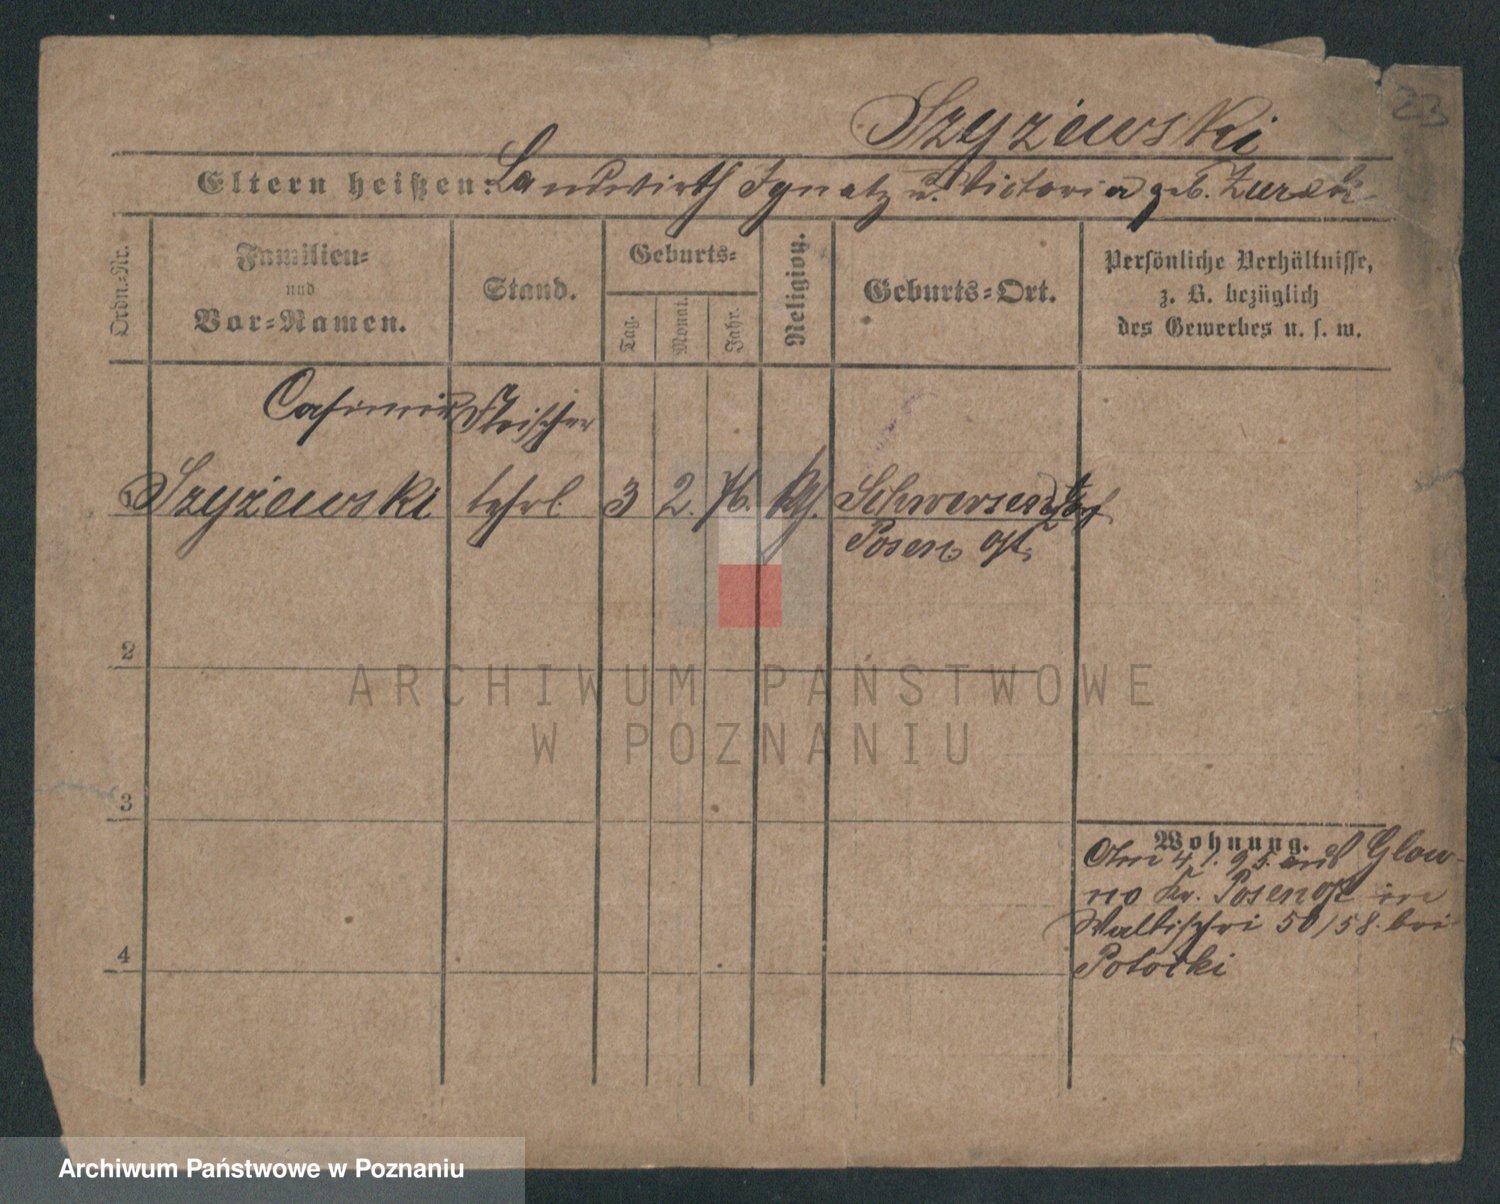 23
Szyżewski
Eltern heißen: Landwirth Ignatz u. Victoria geb. Zurek
Ordn.-Nr.
Familien-
und
Vor-Namen.
Stand.
Geburts-
Tag.
Monat.
Jahr.
Religion.
Geburts-Ort.
Persönliche Verhältnisse,
z. B. bezüglich
des Gewerbes u. s. w.
Casimir Fleischer
1 Szyżewski lehrl 3 2. 76. kth. Schwersenz
Posen Ost.
2
3
4
Wohnung.
4. 1. 95. aus Glow-
no Kr. Posen Ost in
Wallischei 50/58. bei
Potocki
ARCHIWUM PAŃSTWOWE
W POZNANIU
Archiwum Państwowe w Poznaniu